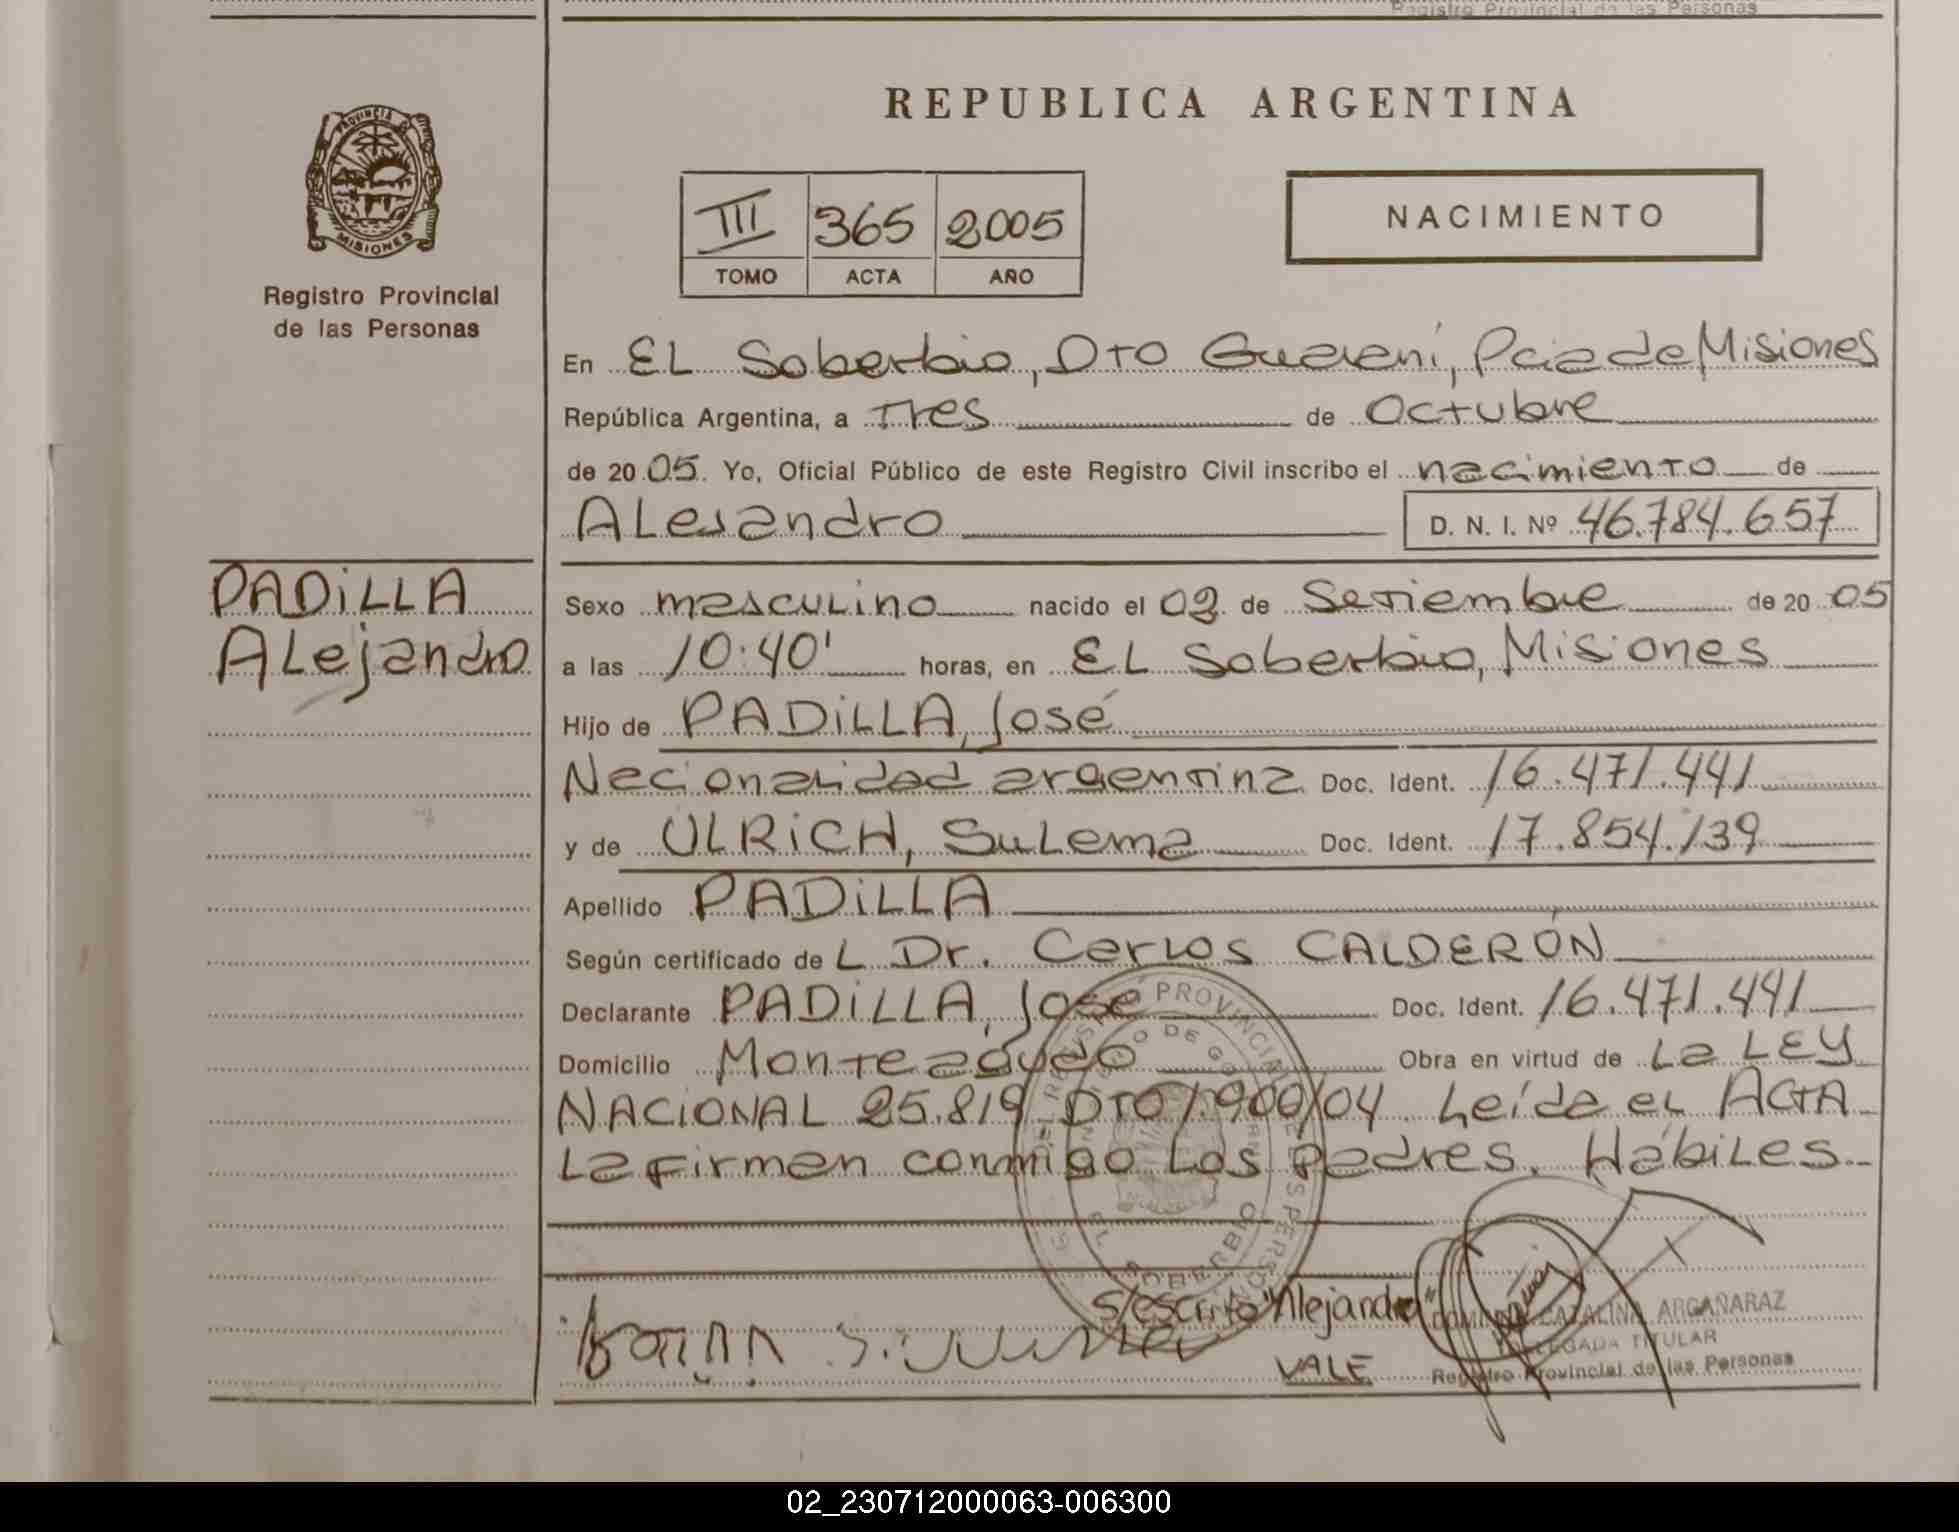 Registro Provincial de las Personas
REPUBLICA ARGENTINA
PROVINCIA DE
MISIONES
Registro Provincial
de las Personas
III 365 2005
TOMO ACTA AÑO
NACIMIENTO
En EL Soberbio, DTO Guaraní, Pcia de Misiones
República Argentina, a Tres de Octubre
de 20 05. Yo, Oficial Público de este Registro Civil inscribo el nacimiento de
ALejandro D. N. I. Nº 46.784.657
PADiLLA
ALejandro
Sexo mascuLino nacido el 02 de Setiembre de 20 05
a las 10:40' horas, en EL Soberbio, Misiones
Hijo de PADiLLA, José
NacionaLidad argentina Doc. Ident. 16.471.441
y de ULRiCH, SuLema Doc. Ident. 17.854.139
Apellido PADiLLA
Según certificado de L Dr. CarLos CALDERÓN
Declarante PADiLLA, José Doc. Ident. 16.471.441
Domicilio Monteagudo Obra en virtud de La LEY
NACIONAL 25.819 DTO 1.900/04. Leída eL ACTA
La firman conmigo Los padres. HábiLes.
EL SOBERBIO
S/escrito "Alejandro"
VALE
CATALINA ARGAÑARAZ
DELEGADA TITULAR
Registro Provincial de las Personas
02_230712000063-006300